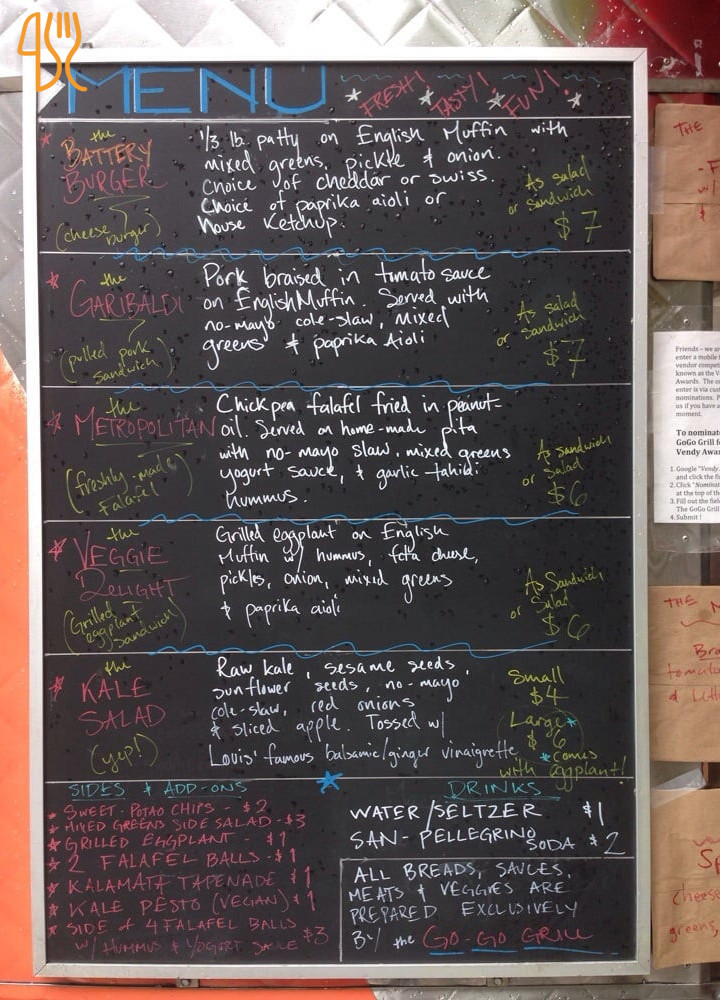 MENU
FRESH! TASTY! FUN!
the
BATTERY
BURGER
(cheese burger)
1/3 lb. patty on English Muffin with
mixed greens, pickle & onion.
Choice of cheddar or swiss.
Choice of paprika aioli or
house Ketchup.
As salad
or sandwich
$7
the
GARIBALDI
(pulled pork
sandwich)
Pork braised in tomato sauce
on English Muffin. Served with
no-mayo cole-slaw, mixed
greens & paprika Aioli
As salad
or sandwich
$7
the
METROPOLITAN
(freshly-made
falafel)
Chickpea falafel fried in peanut-
oil. Served on home-made pita
with no-mayo slaw, mixed greens
yogurt sauce, & garlic tahini
hummus.
As sandwich
or Salad
$6
the
VEGGIE
DELIGHT
(Grilled
eggplant
sandwich)
Grilled eggplant on English
Muffin w/ hummus, feta cheese,
pickles, onion, mixed greens
& paprika aioli
As Sandwich
or Salad
$6
the
KALE
SALAD
(yep!)
Raw kale, sesame seeds,
sunflower seeds, no-mayo
cole-slaw, red onions
& sliced apple. Tossed w/
Louis' famous balsamic/ginger vinaigrette
Small
$4
Large*
$6
*comes
with eggplant!
SIDES & ADD-ONS
SWEET-POTAO CHIPS - $2
MIXED GREENS SIDE SALAD - $3
GRILLED EGGPLANT - $1
2 FALAFEL BALLS - $1
KALAMATA TAPENADE $1
KALE PESTO (VEGAN) $1
SIDE of 4 FALAFEL BALLS
W/ HUMMUS & YOGURT SAUCE $3
DRINKS
WATER/SELTZER $1
SAN-PELLEGRINO SODA $2
ALL BREADS, SAUCES,
MEATS & VEGGIES ARE
PREPARED EXCLUSIVELY
BY the GO-GO GRILL
THE
Friends – we ar
enter a mobile f
vendor compet
known as the V
Awards. The o
enter is via cust
nominations. P
us if you have a
moment.
To nominat
GoGo Grill f
Vendy Awar
1. Google "Vendy
and click the fi
2. Click "Nominat
at the top of th
3. Fill out the fiel
The GoGo Grill
4. Submit !
THE
Bra
tomato
& lett
Sp
cheese
greens,